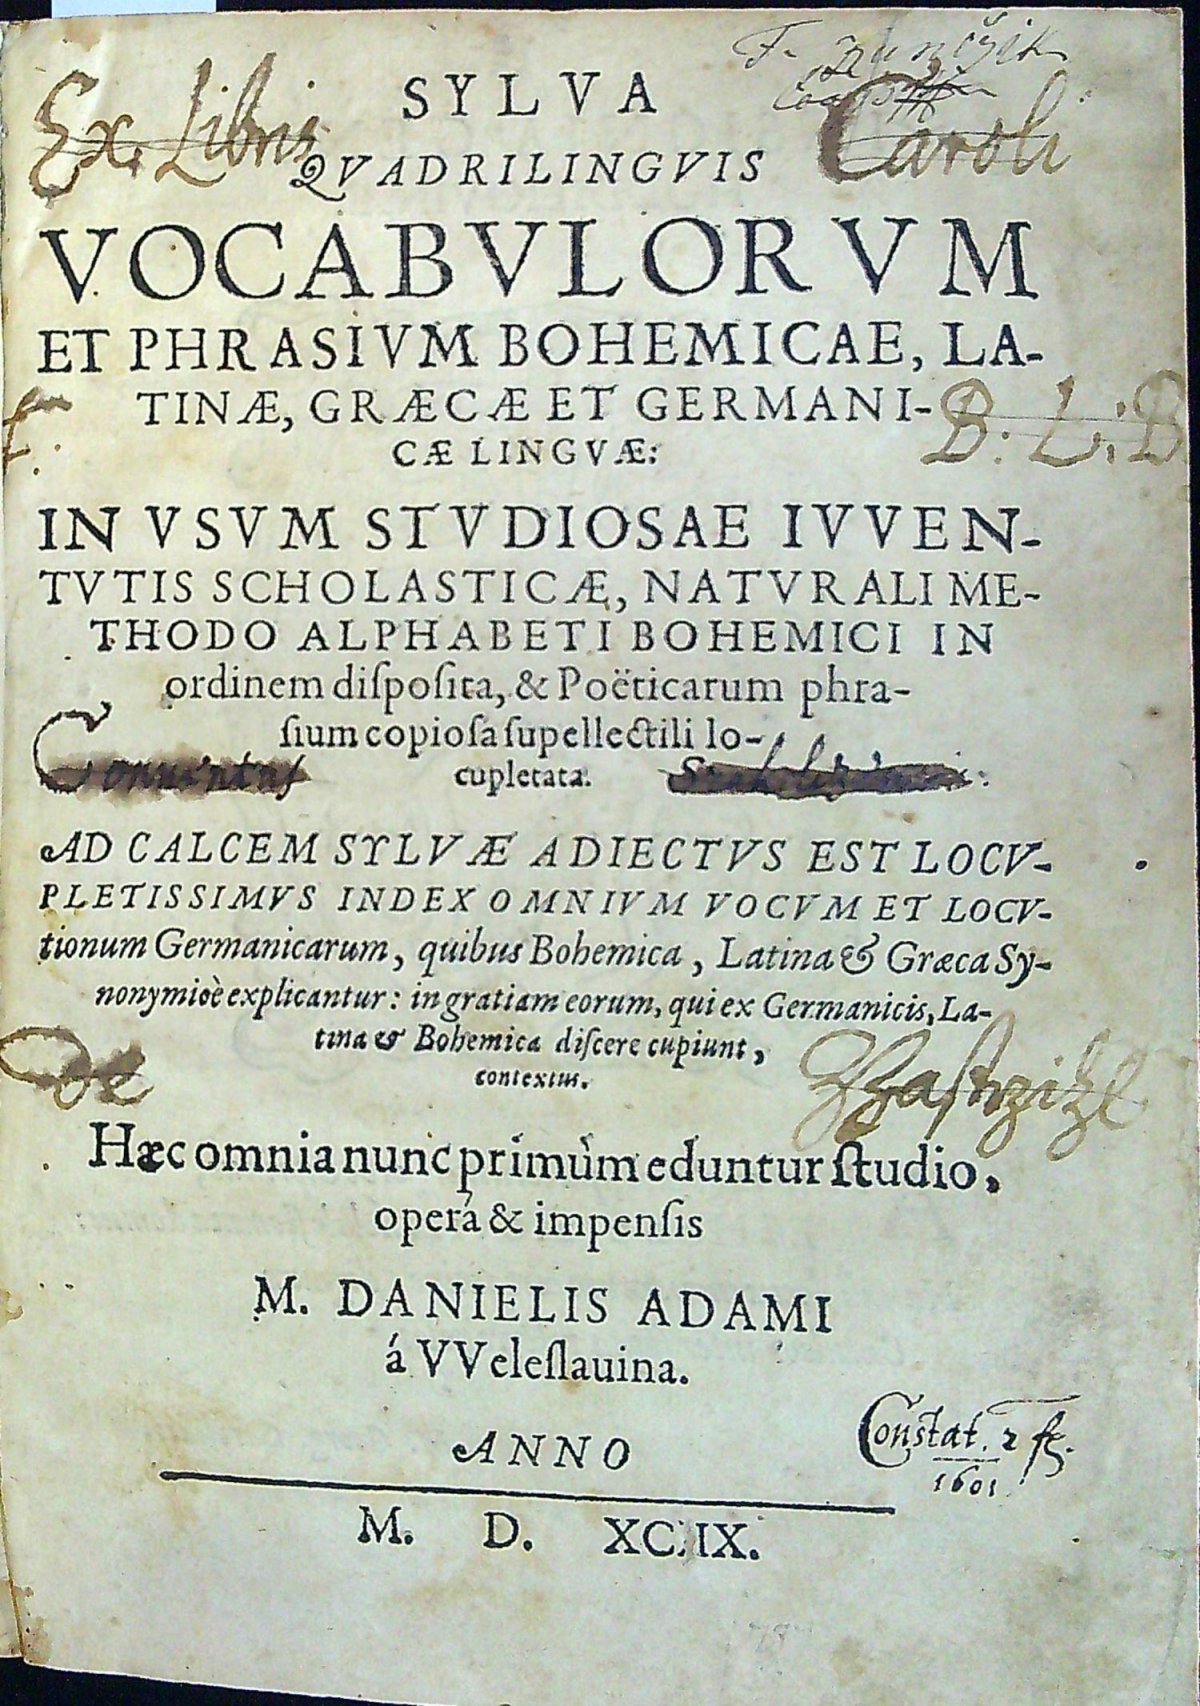 SYLVA
Ex Libris
Caroli
QVADRILINGVIS
VOCABVLORVM
ET PHRASIVM BOHEMICAE, LA-
TINÆ, GRÆCÆ ET GERMANI-
B: L: B
CÆ LINGVÆ:
IN VSVM STVDIOSAE IVVEN-
TVTIS SCHOLASTICÆ, NATVRALI ME-
THODO ALPHABETI BOHEMICI IN
ordinem diſpoſita, & Poëticarum phra-
ſium copioſa ſupellectili lo-
cupletata.
AD CALCEM SYLVÆ ADIECTVS EST LOCV-
PLETISSIMVS INDEX OMNIVM VOCVM ET LOCV-
tionum Germanicarum, quibus Bohemica, Latina & Græca Sy-
nonymicè explicantur: in gratiam eorum, qui ex Germanicis, La-
tina & Bohemica diſcere cupiunt,
contextus.
de
Hæc omnia nunc primùm eduntur ſtudio,
operá & impenſis
M. DANIELIS ADAMI
á VVeleſlauina.
ANNO
Conſtat. 2 fl.
1601
M. D. XCIIX.